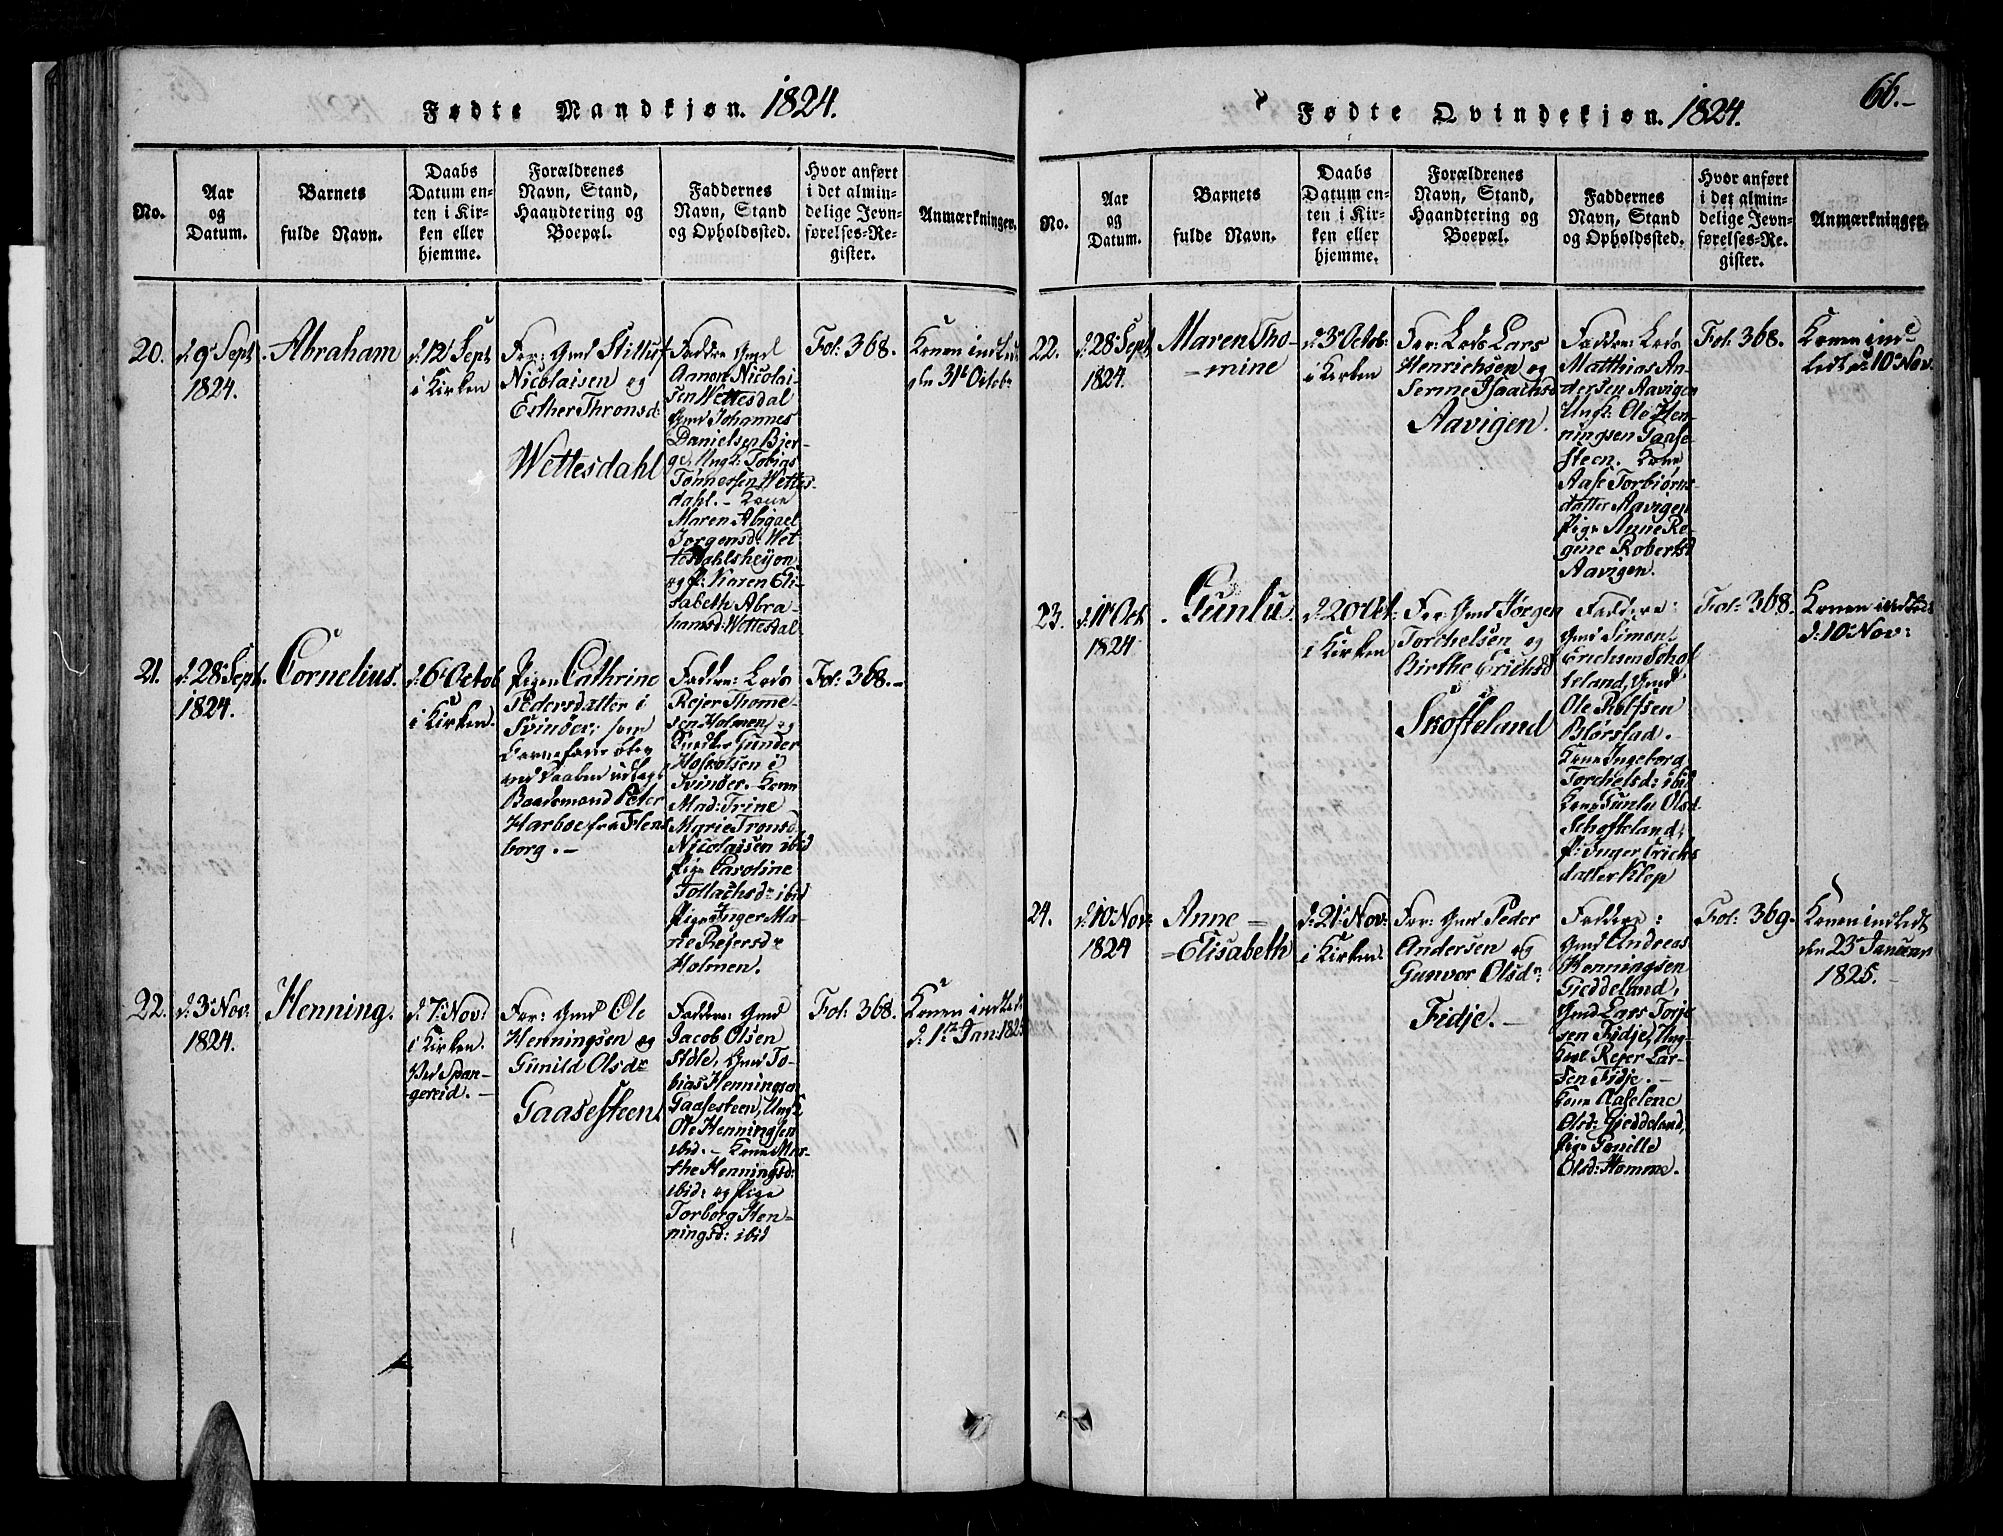 Fødte Mandkjøn. 1824.
No.
Aar
og
Datum.
Barnets
fulde Navn.
Daabs
Datum en-
ten i Kir-
ken eller
hjemme.
Forældrenes
Navn, Stand,
Haandtering og
Boepæl.
Faddernes
Navn, Stand
og Opholdssted.
Hvor anført
i det almin-
delige Jevn-
førelses-Re-
gister.
Anmærkninger.
20.
d 9 Sept
1824.
Abraham
d. 12 Sept
i Kirken
For: Gmd Stilluf
Nicolaisen og
Esther Thronsd:
Wettesdahl
Faddre Gmd
Aanon Nicolai-
sen Wettesdal
Gmd Johannes
Danielsen Bjer-
ge, Ungk: Tobias
Tønnessen Wettes-
dahl. - Kone
Maren Abigael
Jørgensd: Wet-
tesdahlsheijen
og P: Karen Eli-
sabeth Abra-
hamsd: Wettesdal
Fol: 368.
Konen indledt
den 31t Octobr
21.
d. 28 Sept.
1824.
Cornelius.
d. 6t Octob
i Kirken.
Pigen Cathrine
Pedersdatter i
Svinøer; som
Barnefader blev
ved Daaben udlagt
Baadsmand Peter
Harboe fra Flens-
borg. -
Faddre: Lods
Rejer Thomme-
sen Holmen, og
Gunder
i
Svinøer. Kone
Mad: Trine
Marie Tronsd.
Nicolaisen ibid
Pige Caroline
Tollachsdr ibid
Pige Inger Ma-
rie Rejersdr
Holmen.
Fol: 368. -
22.
d. 3 Nov:
1824.
Henning.
d. 7 Nov:
i Kirken.
Ved Span-
gereid. -
For: Gmd Ole
Henningsen og
Gunild Olsdr
Gaasesteen.
Faddere: Gmd
Jacob Olsen
Støle, Gmd To-
bias Henningsen
Gaasesteen, Ungk
Ole Henningsen
ibid. - Kone Mar-
the Henningsd:
ibid: og Pige
Torborg Hen-
ningsd: ibid
Fol: 368.
Konen indledt
d: 1te Jan: 1825
66.-
Fødte Qvindekjøn. 1824.
No.
Aar
og
Datum.
Barnets
fulde Navn.
Daabs
Datum en-
ten i Kir-
ken eller
hjemme.
Forældrenes
Navn, Stand,
Haandtering og
Boepæl.
Faddernes
Navn, Stand
og Opholdssted.
Hvor anført
i det almin-
delige Jevn-
førelses-Re-
gister.
Anmærkninger.
22.
d. 28 Sept
1824.
Maren Tho-
=mine
d. 3 Octob:
i Kirken
For: Lods Lars
Henrichsen og
Serine Isaachsd
Aavigen.
Faddre: Lods
Matthias An-
dersen Aavigen
Ungk: Ole Hen-
ningsen Gaase-
steen. Kone
Aase Torbiørns-
datter Aavigen
Pige Anne Re-
gine Robertsd
Aavigen.
Fol: 368.
Konen ind-
ledt d: 10 Nov.
23.
d. 11t Oct
1824
Gunlu.
d: 22 Oct:
i Kirken
For: Gmd Jørgen
Torchelsen og
Birthe Erichsd
Skofteland
Faddere:
Gmd Simon
Erichsen Schof-
teland, Gmd
Ole Rolfsen
Blørstad. -
Kone Ingeborg
Torchelsd: ibid
Kone Gunlu Olsd.
Schofteland,
P: Inger Erichs
datter Klep
Fol: 368.
Konen indledt
d: 10 Nov:
24.
d: 10 Nov:
1824
Anne=
=Elisabeth
d: 21 Nov:
i Kirken.
For: Gmd Peder
Andersen og
Gunvor Olsdr
Fidje. -
Faddere:
Gmd Andreas
Henningsen
Gieddeland,
Gmd Lars Torje-
sen Fidje, Ung-
Rejer Lar-
sen Fidje. -
Kone Aaselene
Olsd: Gieddeland,
Pige Pernille
Olsd: Homme.
Fol: 369.
Konen indledt
den 23 Januar
1825. -